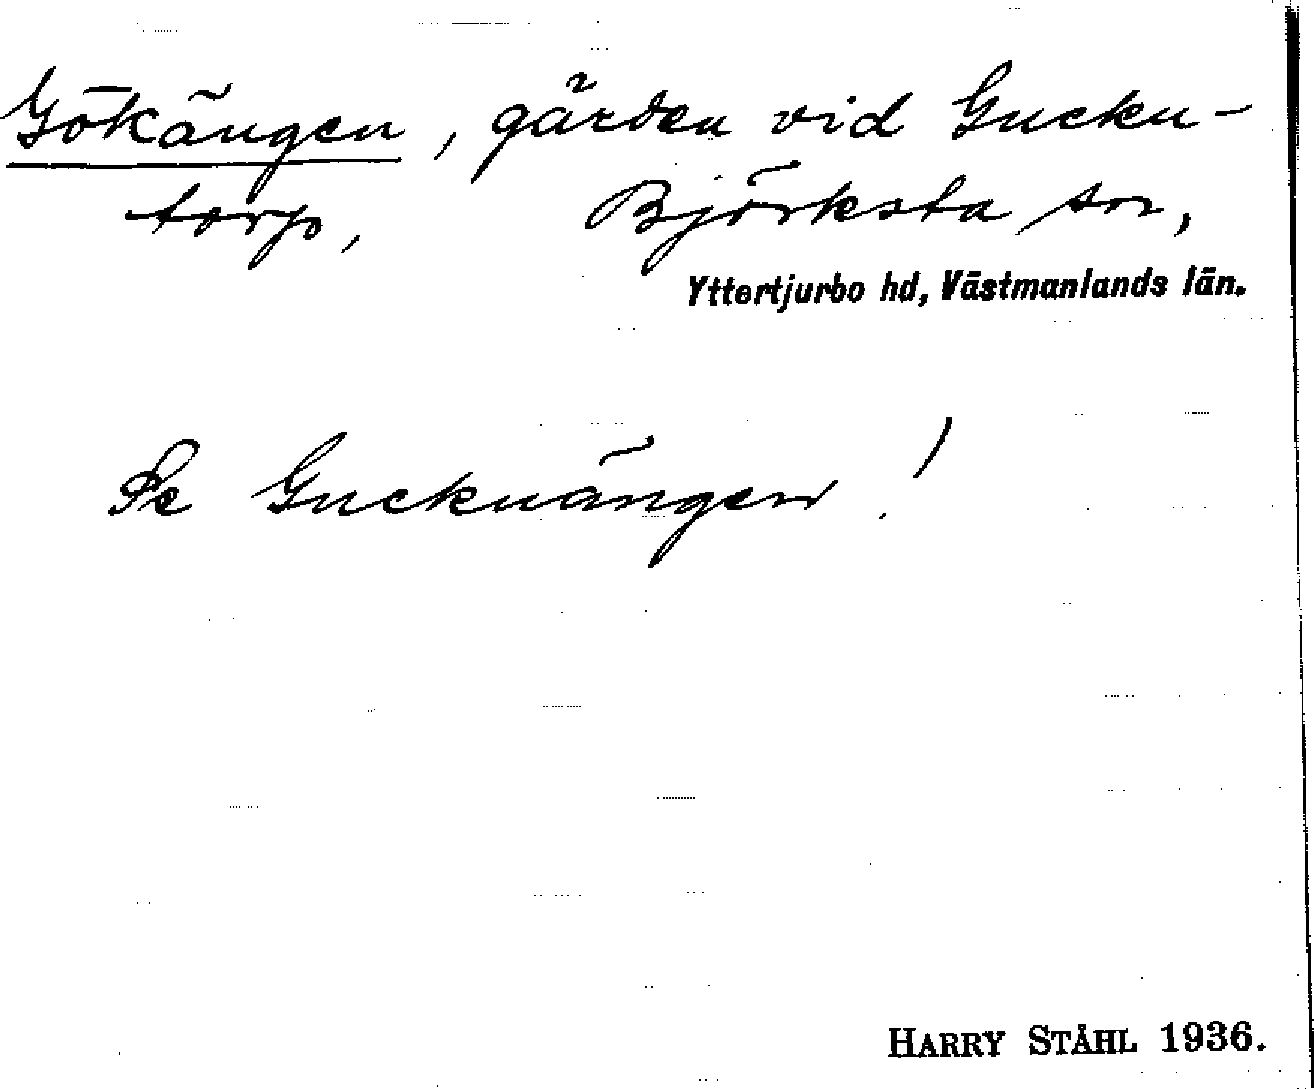 Gökängen, gärden vid Gucku-
torp, Björksta sn,
Yttertjurbo hd, Västmanlands län.
Se Guckuängen!
HARRY STÅHL 1936.